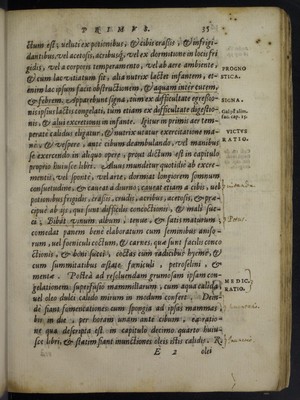 PRIMVS. 35
ctum est, veluti ex potionibus, & cibis crassis, & infrigi-
dantibus, vel acetosis, attribuᵫ, vel ex dormitione in locis fri
gidis, vel a corporis temperamento, vel ab aere ambiente,
& cum lac vitiatum sit, alia nutrix lactet infantem, et-
enim lac ipsum facit obstructionem, & aquam inter cutem,
& febrem. Apparebunt signa, tum ex difficultate egressio-
nis ipsius lactis congelati, tum etiam ex difficultate digestio-
nis, & alui excretione in infante. Igitur in primis aer tem-
peratè calidus eligatur, & nutrix utatur exercitatione ma-
nè & vespere, ante cibum deambulando, vel manibus
se exercendo in aliquo opere, prout dictum est in capitulo
proprio huiusce libri. Aluus mundetur quotidiè ab excre-
mentis, vel sponte, vel arte, dormiat longiorem somnum
consuetudine, & caueat à diurno: caueat etiam à cibis, uel
potionibus frigidis, crassis, crudis, acribus, acetosis, & præ-
cipuè ab ijs, quæ sunt difficilis concoctionis, & mali succi
ca. Bibat vinum album, tenue, & satis maturum:
comedat panem bene elaboratum cum seminibus aniso-
rum, uel fœniculi coctum, & carnes, quæ sunt facilis conco
ctionis, & boni succi, coctas cum radicibus bysmæ, &
cum summitatibus fœniculi, petroselini, &
mentæ. Postea ad resoluendam grumosam ipsam con-
gelationem superfusio mammillarum, cum aqua calida,
uel oleo dulci calido mirum in modum confert. Dein-
de fiant fomentationes cum spongia ad ipsas mammas
bis in die, per horam unam ante cibum, ea ratio-
ne quæ descripta est in capitulo decimo quarto huiu-
sce libri, & statim fiant inunctiones oleis istis calidis. R.
E 2 olei
PROGNO
STICA.
SIGNA.
VICTVS
RATIO.
MEDIC.
RATIO.